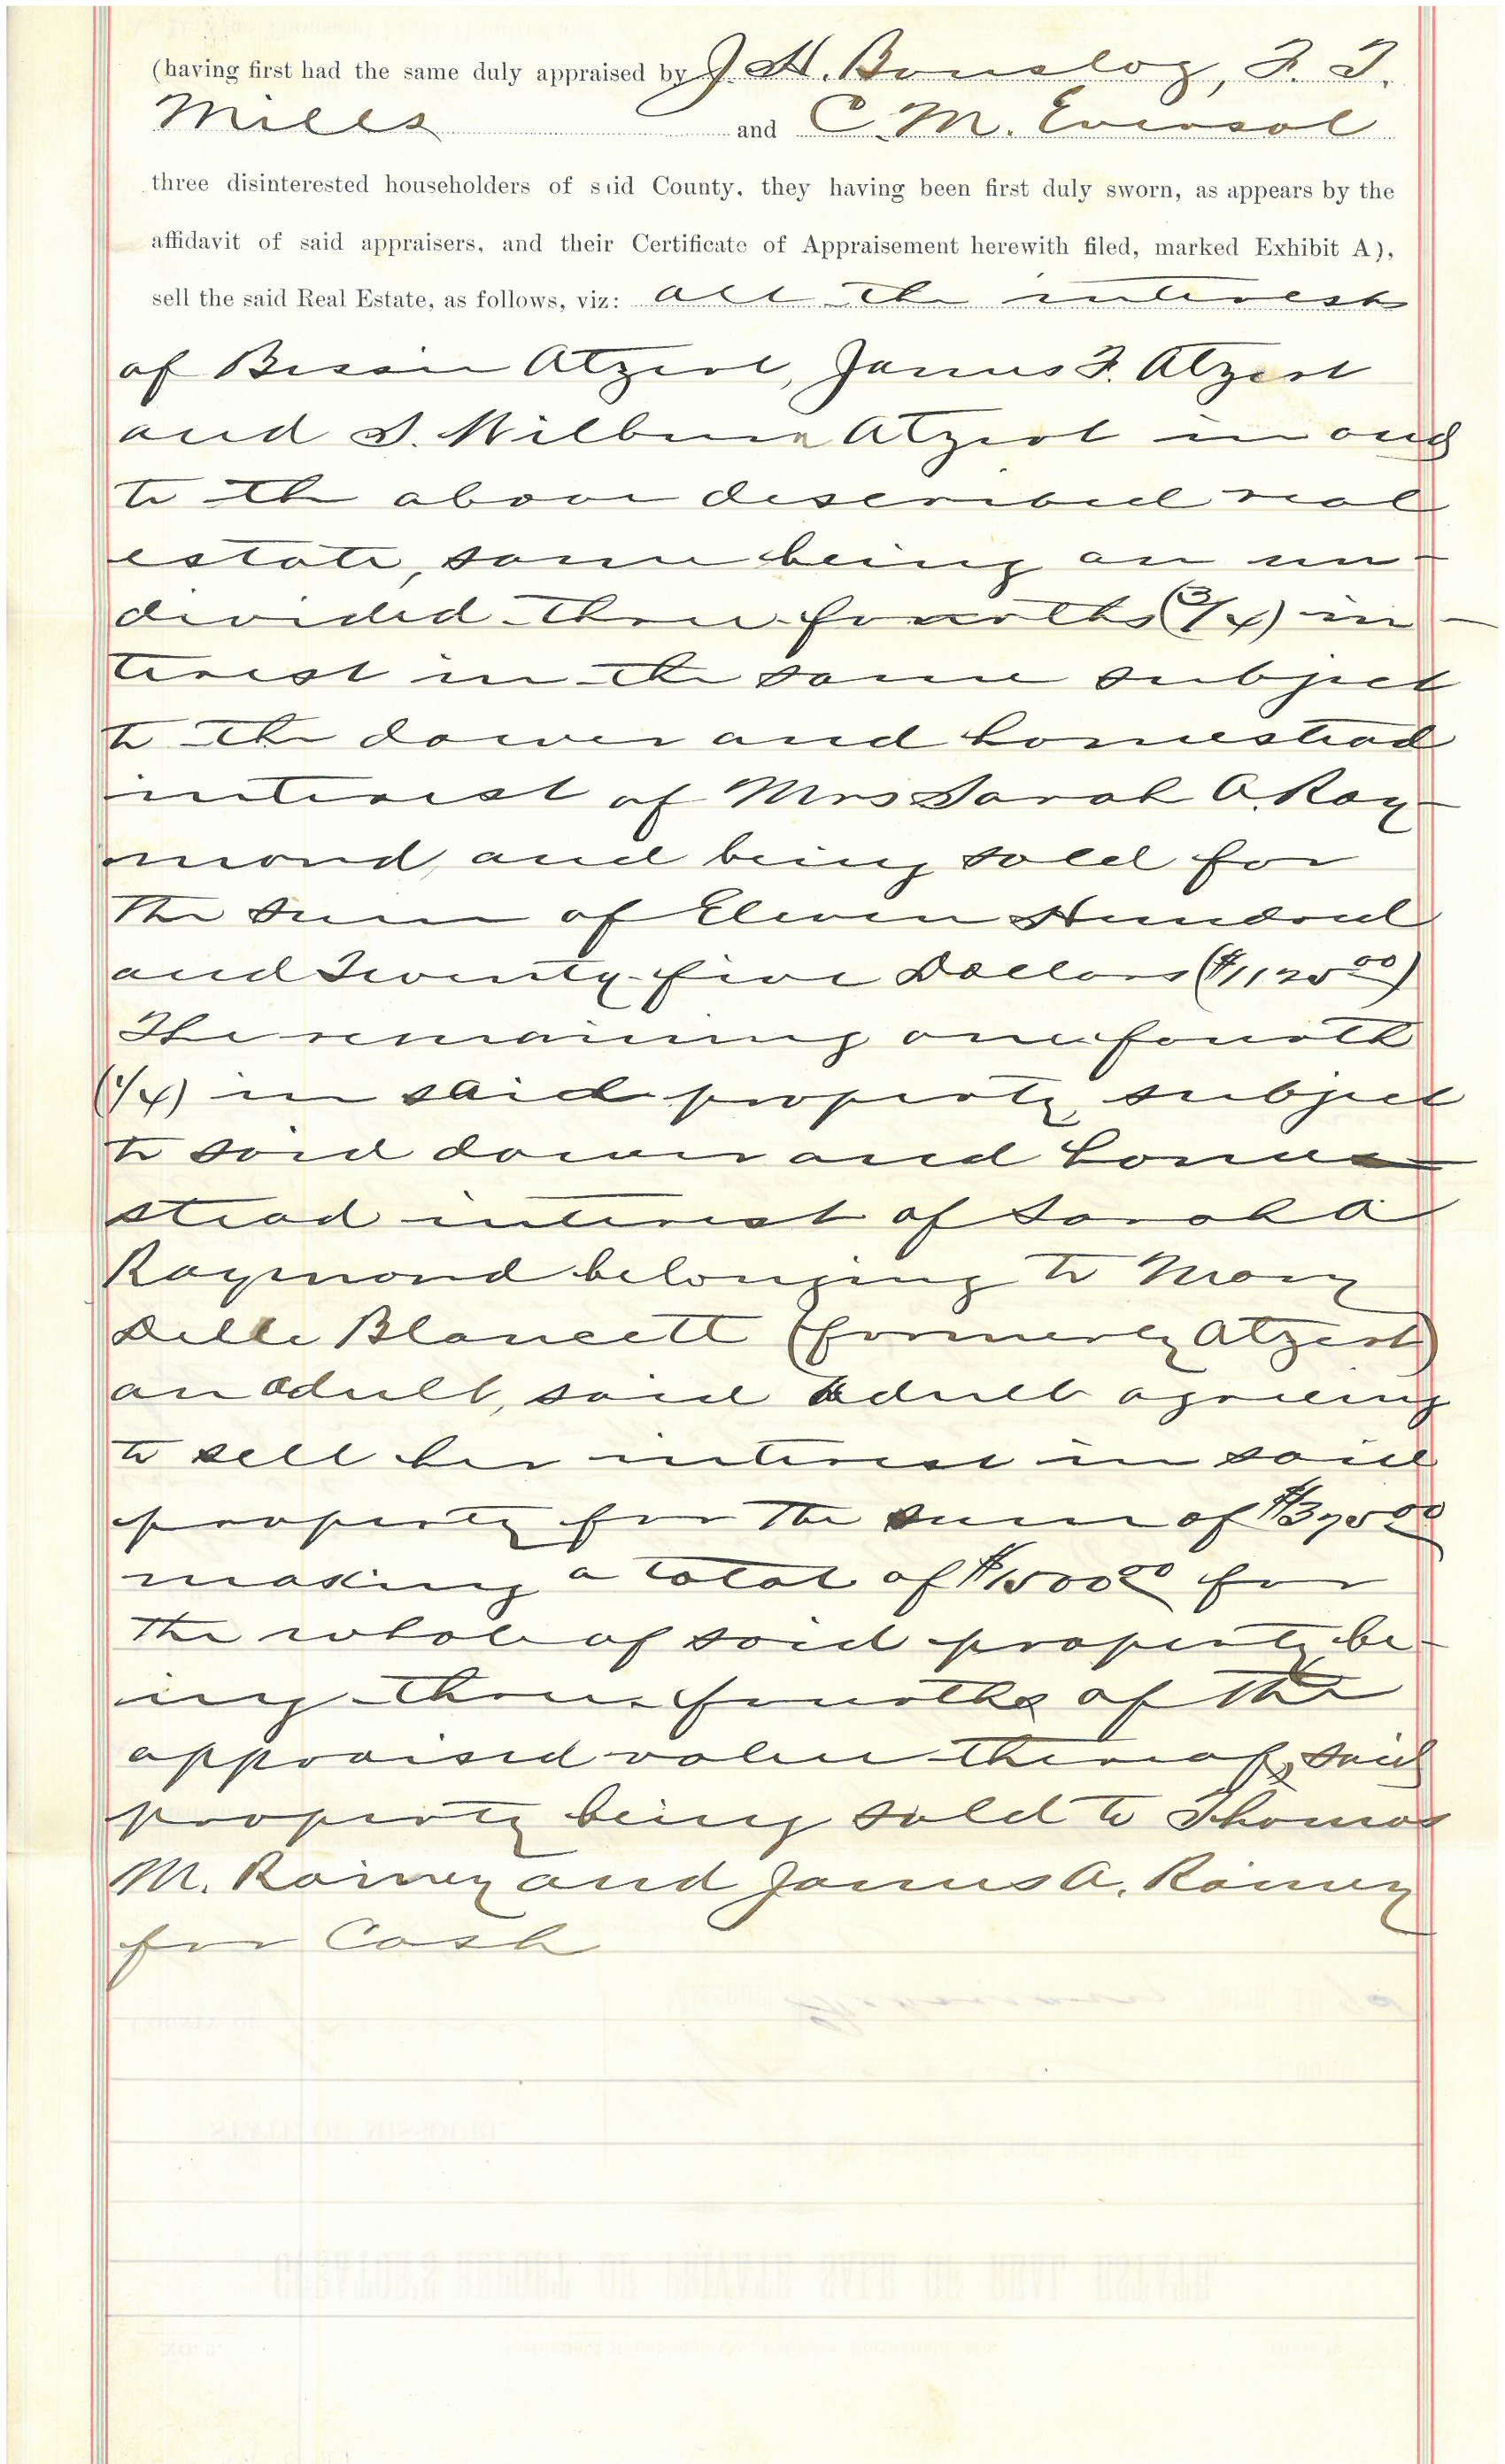 (having first had the same duly appraised by J. H. Bouslog, F. T.
Mills and C. M. Eversol
three disinterested householders of said County, they having been first duly sworn, as appears by the
affidavit of said appraisers, and their Certificate of Appraisement herewith filed, marked Exhibit A),
sell the said Real Estate, as follows, viz: all the interest
of Bessie Atzert, James F. Atzert
and S. Wilburn Atzert in and
to the above described real
estate, same being an un-
divided three fourths (3/4) in-
terest in the same subject
to the dower and homestead
interest of Mrs Sarah A. Ray-
mond, and being sold for
the sum of Eleven Hundred
and Twenty-five Dollars ($1125 00)
The remaining one fourth
(1/4) in said property, subject
to said dower and home-
stead interest of Sarah A
Raymond belonging to Mary
Delle Blancett (formerly Atzert)
an adult, said adult agreeing
to sell her interest in said
property for the sum of $375 00
making a total of $1500 00 for
the whole of said property be-
ing three fourths of the
appraised value thereof, said
property being sold to Thomas
M. Rainey and James A. Rainey
for Cash